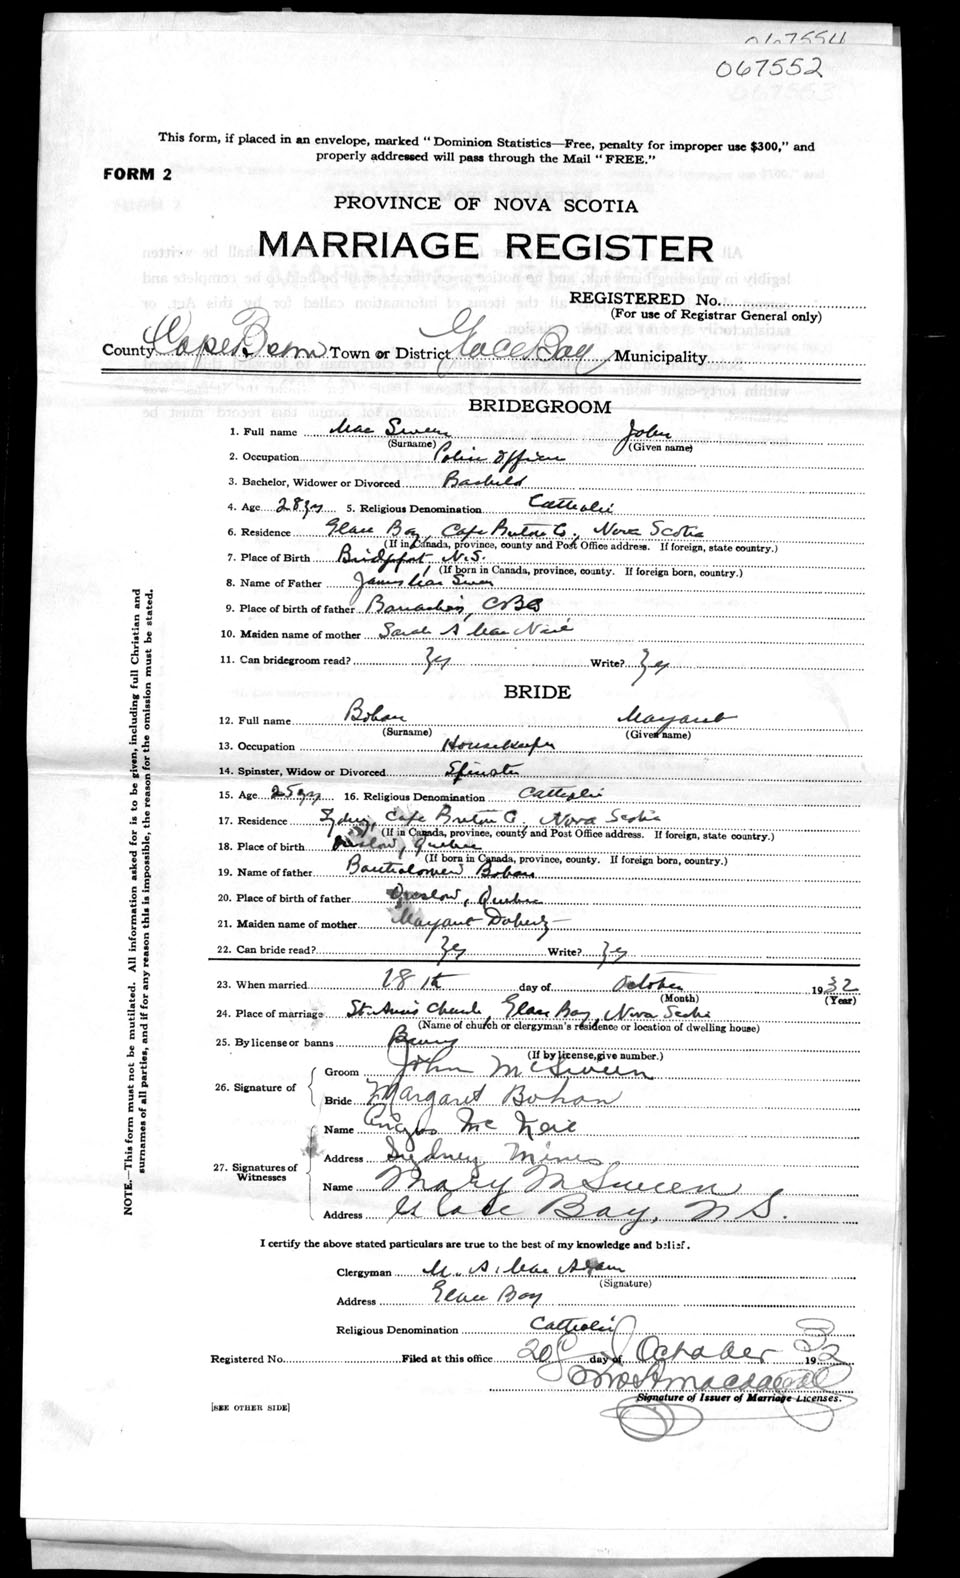 067554
067552
This form, if placed in an envelope, marked " Dominion Statistics—Free, penalty for improper use $300," and
properly addressed will pass through the Mail " FREE."
FORM 2
PROVINCE OF NOVA SCOTIA
MARRIAGE REGISTER
REGISTERED No.
(For use of Registrar General only)
County Cape Breton Town or District Glace Bay Municipality
BRIDEGROOM
1. Full name Mac Sween John
(Surname) (Given name)
2. Occupation Police Officer
3. Bachelor, Widower or Divorced Bachelor
4. Age 28 yrs 5. Religious Denomination Catholic
6. Residence Glace Bay, Cape Breton Co, Nova Scotia
(If in Canada, province, county and Post Office address. If foreign, state country.)
7. Place of Birth Bridgeport, N.S.
(If born in Canada, province, county. If foreign born, country.)
8. Name of Father James Mac Sween
9. Place of birth of father CB
10. Maiden name of mother Sarah A Mac Neil
11. Can bridegroom read? Yes Write? Yes
BRIDE
12. Full name Bohan Margaret
(Surname) (Given name)
13. Occupation Housekeeper
14. Spinster, Widow or Divorced Spinster
15. Age 25 yrs 16. Religious Denomination Catholic
17. Residence Sydney, Cape Breton Co, Nova Scotia
(If in Canada, province, county and Post Office address. If foreign, state country.)
18. Place of birth Onslow, Quebec
(If born in Canada, province, county. If foreign born, country.)
19. Name of father Bartholomew Bohan
20. Place of birth of father Onslow, Quebec
21. Maiden name of mother Margaret Doherty
22. Can bride read? Yes Write? Yes
23. When married 18th day of October 1932
(Month) (Year)
24. Place of marriage St. Ann's Church, Glace Bay, Nova Scotia
(Name of church or clergyman's residence or location of dwelling house)
25. By license or banns Banns
(If by license, give number.)
26. Signature of
Groom John McSween
Bride Margaret Bohan
27. Signatures of Witnesses
Name Angus Mc Neil
Address Sydney Mines
Name Mary McSween
Address Glace Bay, N S.
I certify the above stated particulars are true to the best of my knowledge and belief.
Clergyman M. A. Mac Adam
(Signature)
Address Glace Bay
Religious Denomination Catholic
Registered No. Filed at this office 20 day of October 1932
Signature of Issuer of Marriage Licenses.
[SEE OTHER SIDE]
NOTE.—This form must not be mutilated. All information asked for is to be given, including full Christian and
surnames of all parties, and if for any reason this is impossible, the reason for the omission must be stated.